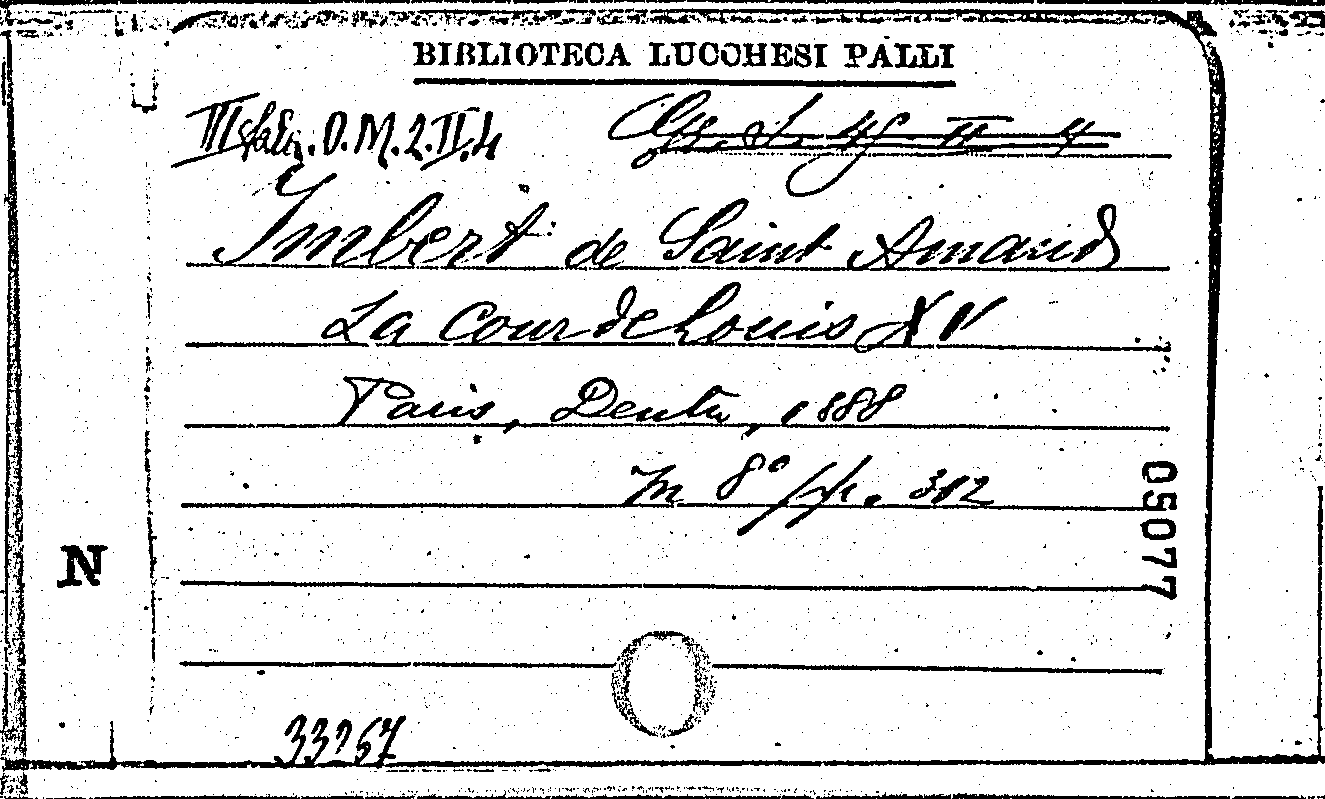 BIBLIOTECA LUCCHESI PALLI
III O.M.2.II.4
Imbert de Saint Amand
La Cour de Louis XV
Paris, Dentu, 1888
In 8° pp. 312
05077
N
33267